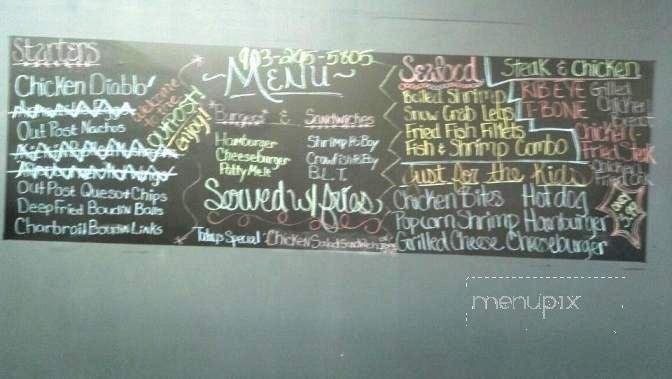 Starters
Chicken Diablo
Out Post Nachos
Out Post Queso & Chips
Deep Fried Boudin Balls
Charbroil Boudin Links
Welcome to the
OutPost
enjoy!
903-295-5805
~Menu~
Burgers & Sandwiches
Hamburger
Cheeseburger
Patty Melt
Shrimp Po Boy
Crawfish Po Boy
B.L.T.
Served w/ fries
Todays Special: Chicken Salad Sandwich
Seafood
Boiled Shrimp
Snow Crab Legs
Fried Fish Fillets
Fish & Shrimp Combo
Steak & Chicken
RIB EYE
T BONE
Grilled
Chicken
Breast
Chicken
Fried Steak
Chicken
Just for the Kids
Chicken Bites Hot dog
Popcorn Shrimp Hamburger
Grilled Cheese Cheeseburger
menupix